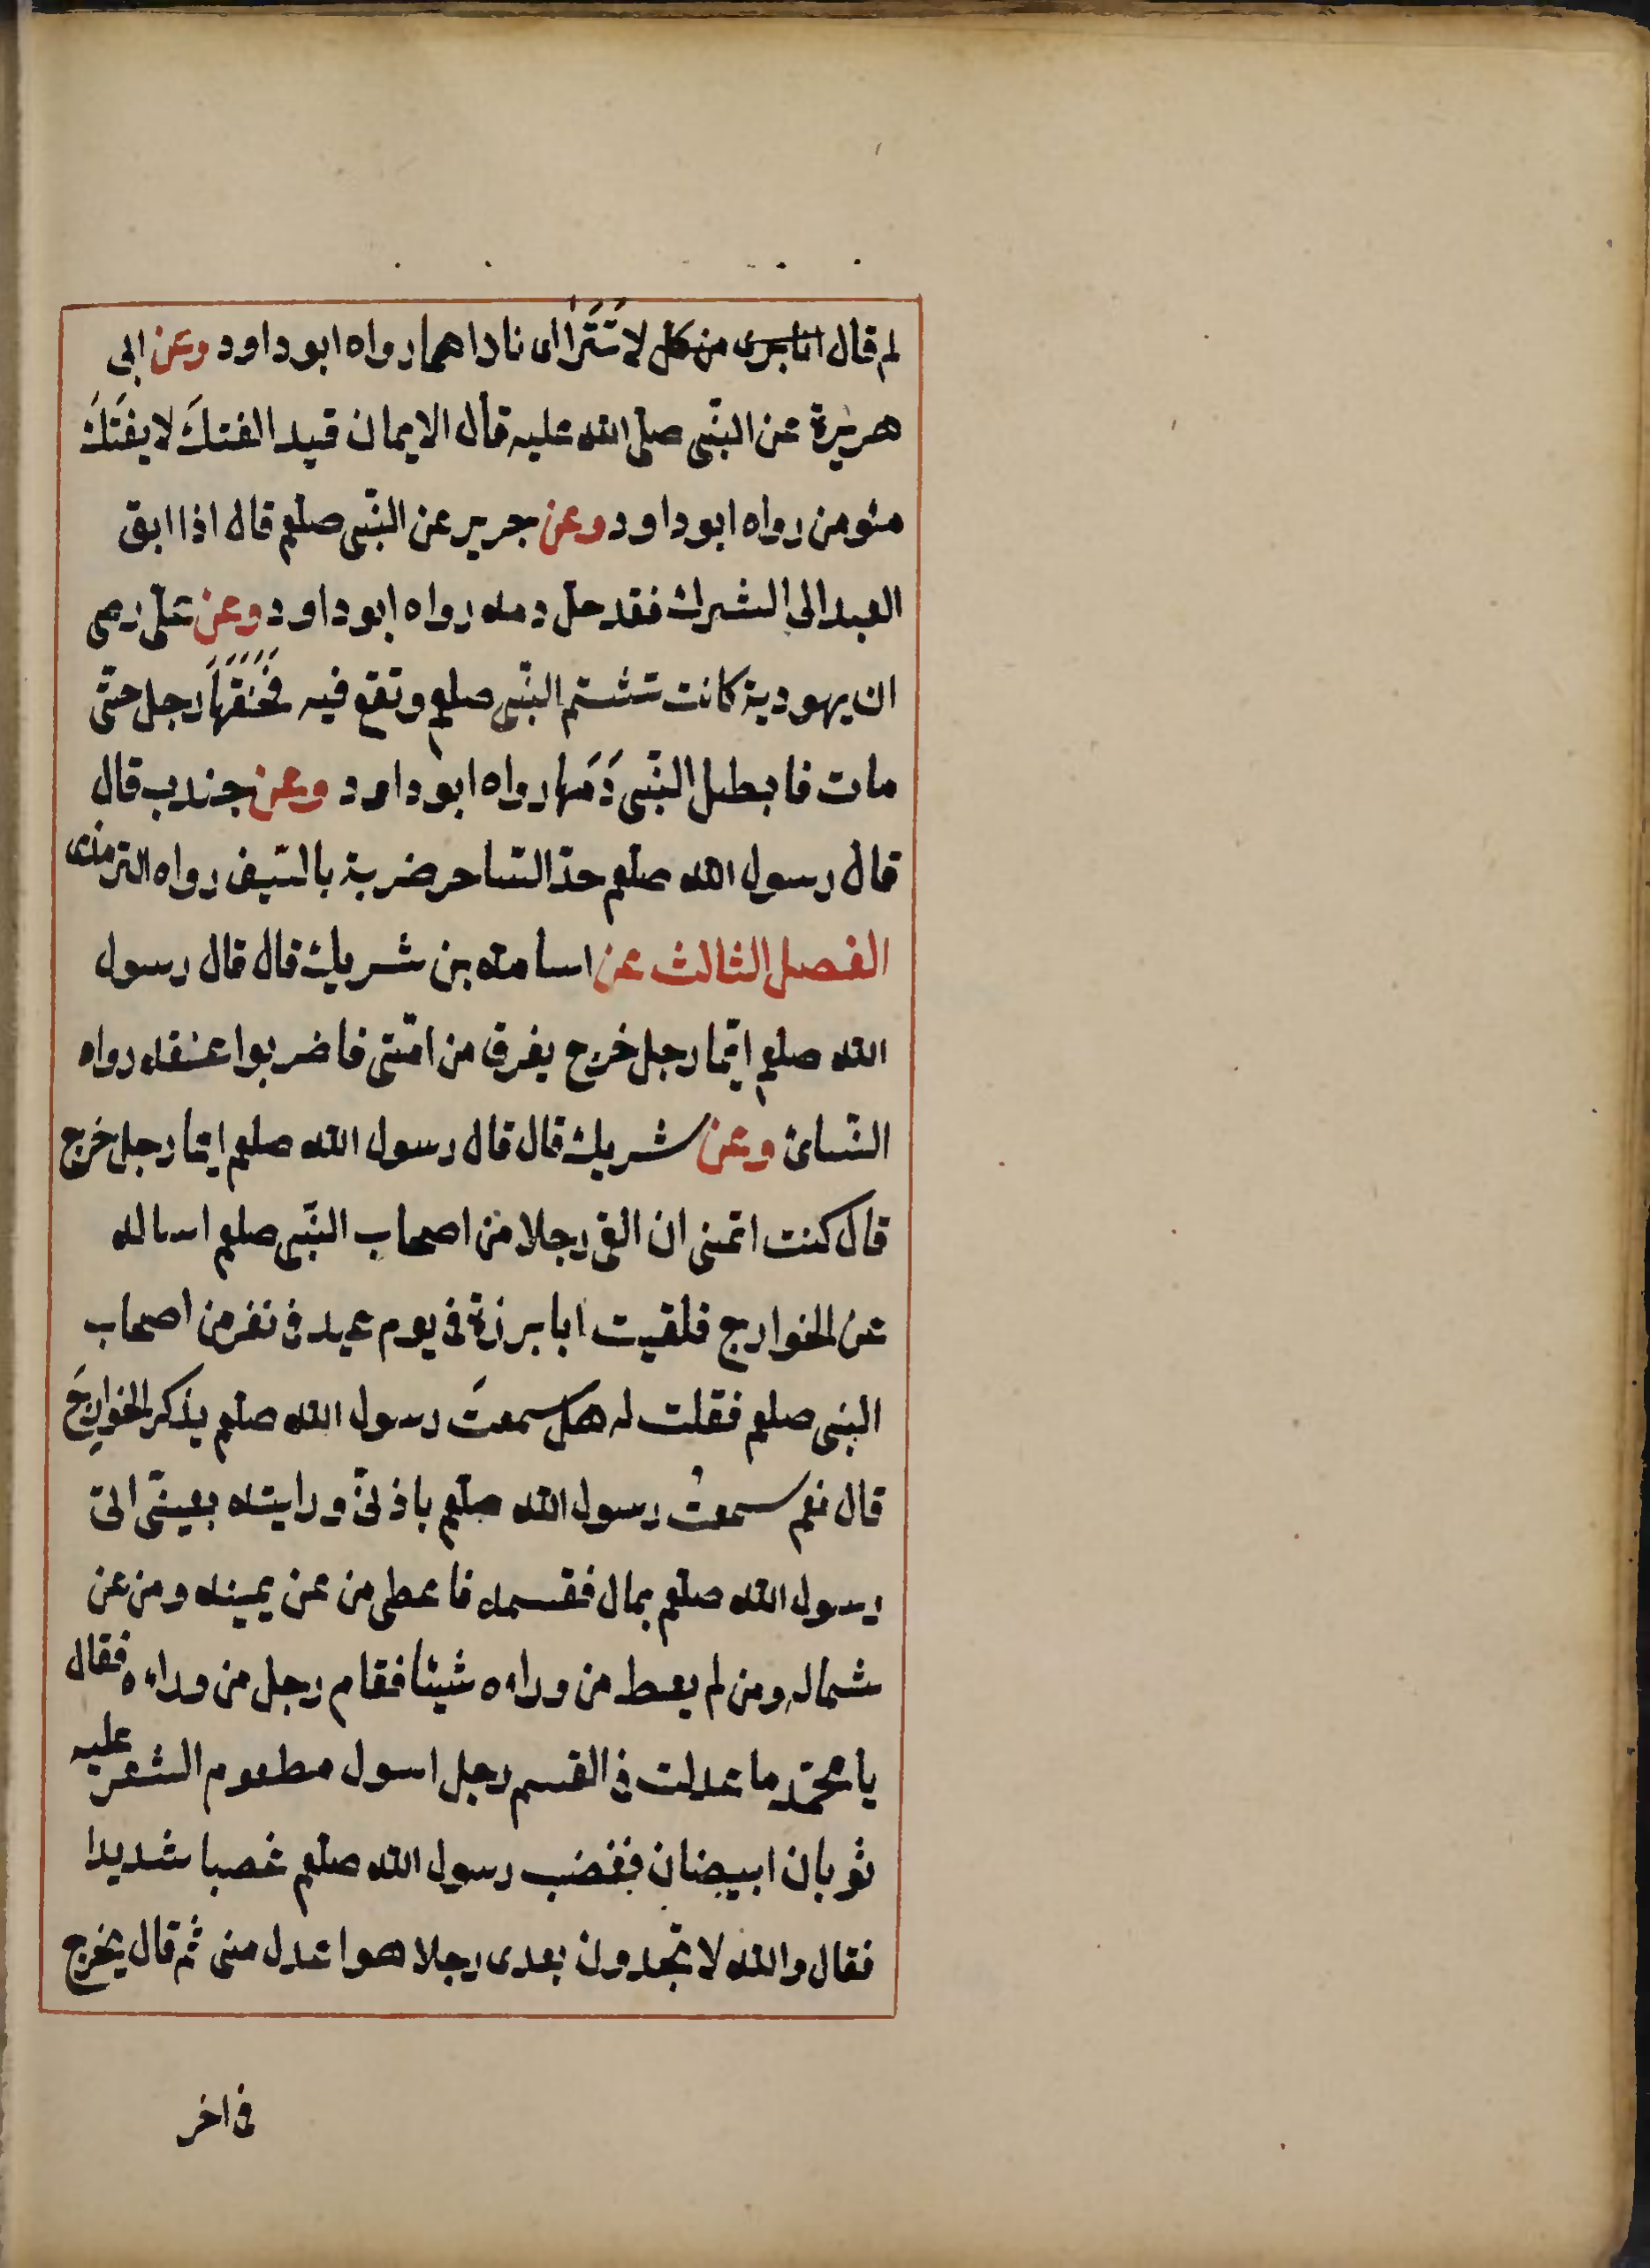 لم قال انا برى من كل لا تَتَرَاٰاى ناداهما رواه ابو داود وعن ابى
هريرة عن النبّى صلى الله عليه قال الايمان قيد الفتكَ لا يفتَكَ
مئومن رواه ابو داود وعن جرير عن النبّى صلعم قال اذا ابق
العبد الى الشرك فقد حل دمه رواه ابو داود وعن علىّ رضى
ان يهودية كانت تشتم النبّى صلعم وتقع فيه فخَنَقَهَا رجل حتّى
مات فابطل النبّى دَمَها رواه ابو داود وعن جندب قال
قال رسول الله صلعم حدّ الساحر ضربة بالسّيف رواه الترمذى
الفصل الثالث عن اسامة بن شريك قال قال رسول
الله صلعم ايّما رجل خرج يفرق من امّتى فاضربوا عنقه رواه
النّسائ وعن شريك قال قال رسول الله صلعم ايّما رجل خرج
قال كنت اتمنى ان القى رجلا من اصحاب النبّى صلعم اساله
عن الخوارج فلقيت ابا برزة فى يوم عيد فى نفر من اصحاب
النبى صلعم فقلت له هل سمعتَ رسول الله صلعم يذكر الخوارِجَ
قال نعم سمعتُ رسول الله صلعم باذنىّ ورايته بعينىّ اتى
رسول الله صلعم بمال فقسمه فاعطى من عن يمينه ومن عن
شماله ومن لم يعط من وراءه شيئا فقام رجل من وراءه فقال
يا محمّد ما عدلت فى القسم رجل اسول مطعوم الشعر عليه
ثوبان ابيضان فغضب رسول الله صلعم غصبا شديدا
فقال والله لا تجدون بعدى رجلا هو اعدل منى ثم قال يخرج
فى اخر